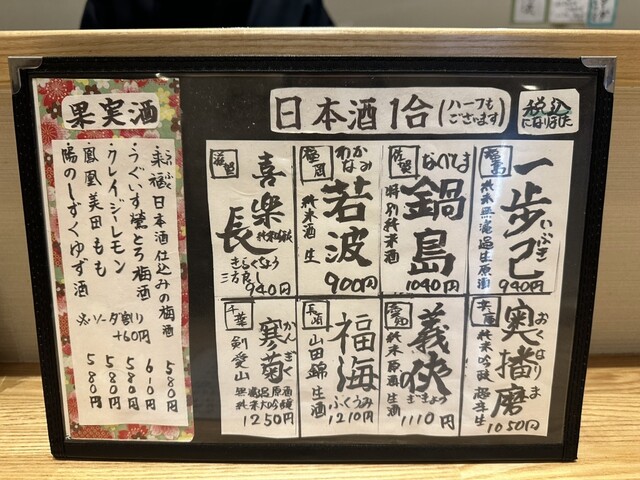 日本酒1合(ハーフもございます)
税込になりました
福島
一歩己
いぶき
純米無濾過生原酒
940円
佐賀
なべしま
鍋島
特別純米酒
1040円
福岡
わかなみ
若波
純米酒 生
900円
滋賀
喜楽長
純米吟醸
きらくちょう
940円
兵庫
おくはりま
奥播磨
純米吟醸 超辛生
1050円
愛知
義侠
ぎきょう
純米原酒 生酒
1110円
長崎
福海
ふくうみ
山田錦 生酒
1210円
千葉
かんぎく
寒菊
剣愛山
無濾過原酒
純米大吟醸
1250円
果実酒
らいふく
来福日本酒仕込みの梅酒 580円
うぐいす鶯とろ梅酒 610円
クレイジーレモン 580円
鳳凰美田もも 580円
陽のしずくゆず酒 580円
※ソーダ割り+60円